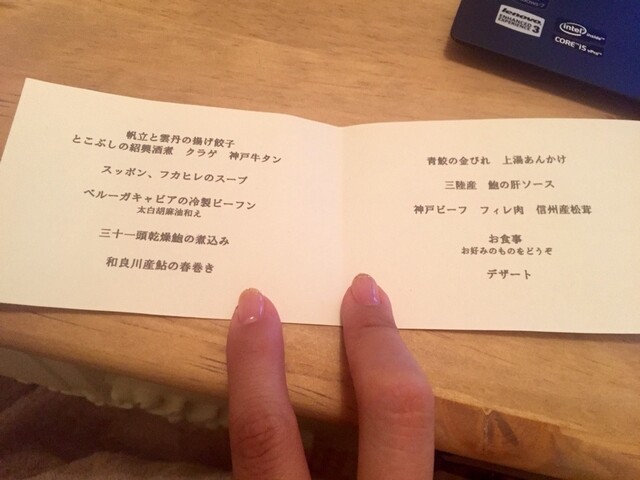 帆立と雲丹の揚げ餃子
とこぶしの紹興酒煮 クラゲ 神戸牛タン
スッポン、フカヒレのスープ
ベルーガキャビアの冷製ビーフン
太白胡麻油和え
三十一頭乾燥鮑の煮込み
和良川産鮎の春巻き
青鮫の金びれ 上湯あんかけ
三陸産 鮑の肝ソース
神戸ビーフ フィレ肉 信州産松茸
お食事
お好みのものをどうぞ
デザート
lenovo
ENHANCED
EXPERIENCE 3
intel inside
CORE i5
vPro